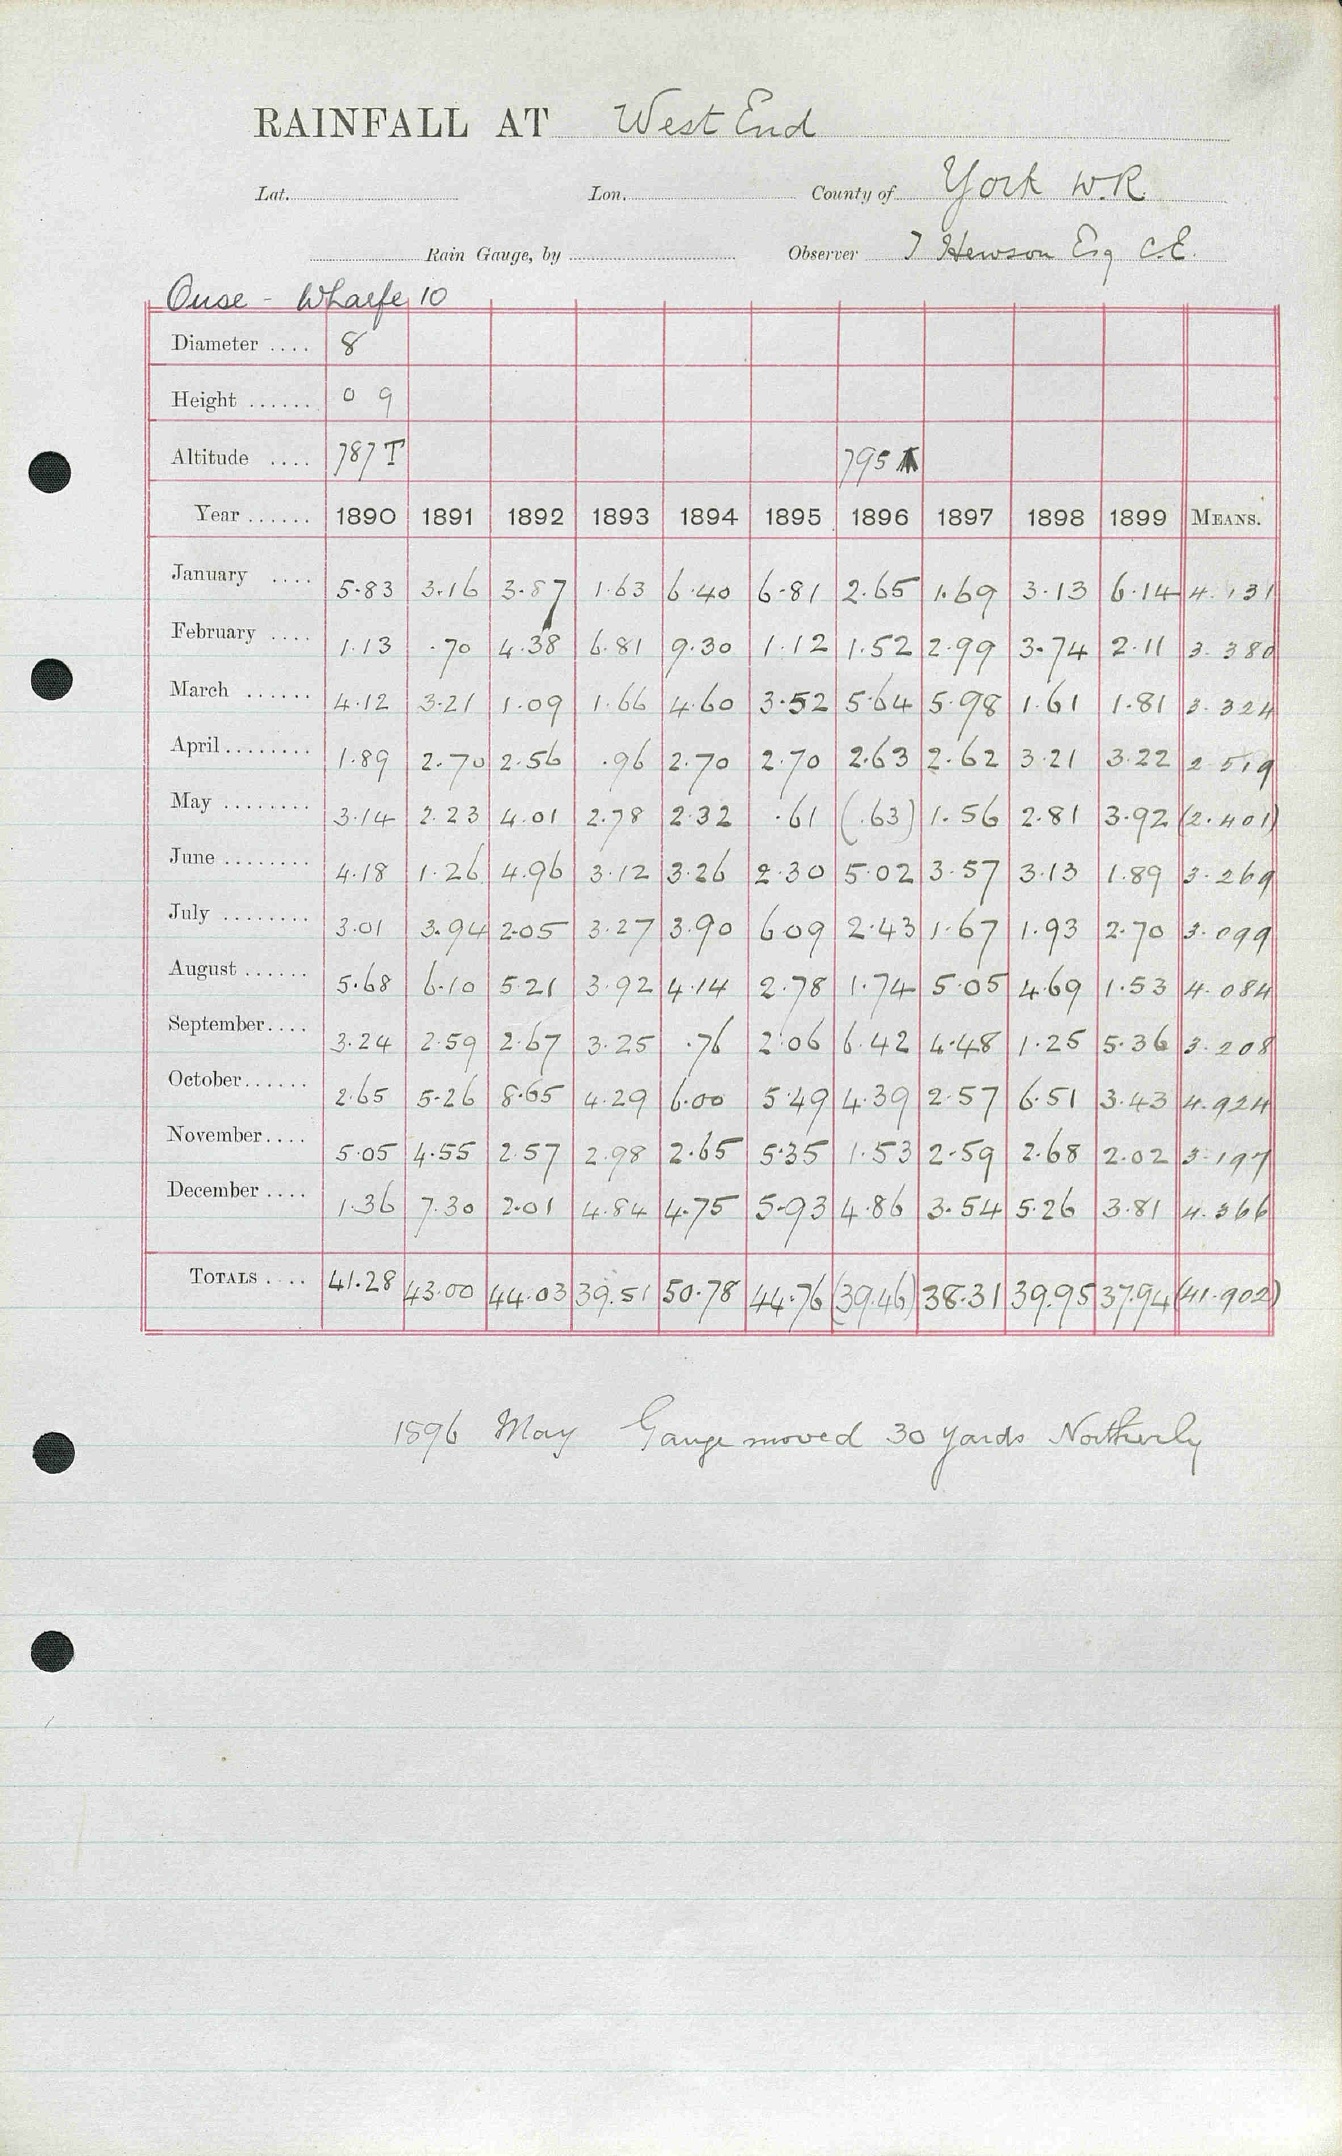 RAINFALL AT West End
Lat. Lon. County of York W.R.
Rain Gauge, by Observer T Hewson Esq C.E.
Ouse - Wharfe 10
Diameter .... 8
Height ...... 0 9
Altitude .... 787 T 795
Year ...... 1890 1891 1892 1893 1894 1895 1896 1897 1898 1899 MEANS.
January .... 5.83 3.16 3.87 1.63 6.40 6.81 2.65 1.69 3.13 6.14 4.131
February .... 1.13 .70 4.38 6.81 9.30 1.12 1.52 2.99 3.74 2.11 3.380
March ...... 4.12 3.21 1.09 1.66 4.60 3.52 5.64 5.98 1.61 1.81 3.324
April ........ 1.89 2.70 2.56 .96 2.70 2.70 2.63 2.62 3.21 3.22 2.519
May ........ 3.14 2.23 4.01 2.78 2.32 .61 (.63) 1.56 2.81 3.92 (2.401)
June ........ 4.18 1.26 4.96 3.12 3.26 2.30 5.02 3.57 3.13 1.89 3.269
July ........ 3.01 3.94 2.05 3.27 3.90 6.09 2.43 1.67 1.93 2.70 3.099
August ...... 5.68 6.10 5.21 3.92 4.14 2.78 1.74 5.05 4.69 1.53 4.084
September .... 3.24 2.59 2.67 3.25 .76 2.06 6.42 4.48 1.25 5.36 3.208
October ...... 2.65 5.26 8.65 4.29 6.00 5.49 4.39 2.57 6.51 3.43 4.924
November .... 5.05 4.55 2.57 2.98 2.65 5.35 1.53 2.59 2.68 2.02 3.197
December .... 1.36 7.30 2.01 4.84 4.75 5.93 4.86 3.54 5.26 3.81 4.366
TOTALS .... 41.28 43.00 44.03 39.51 50.78 44.76 (39.46) 38.31 39.95 37.94 (41.902)
1896 May Gauge moved 30 yards Northerly